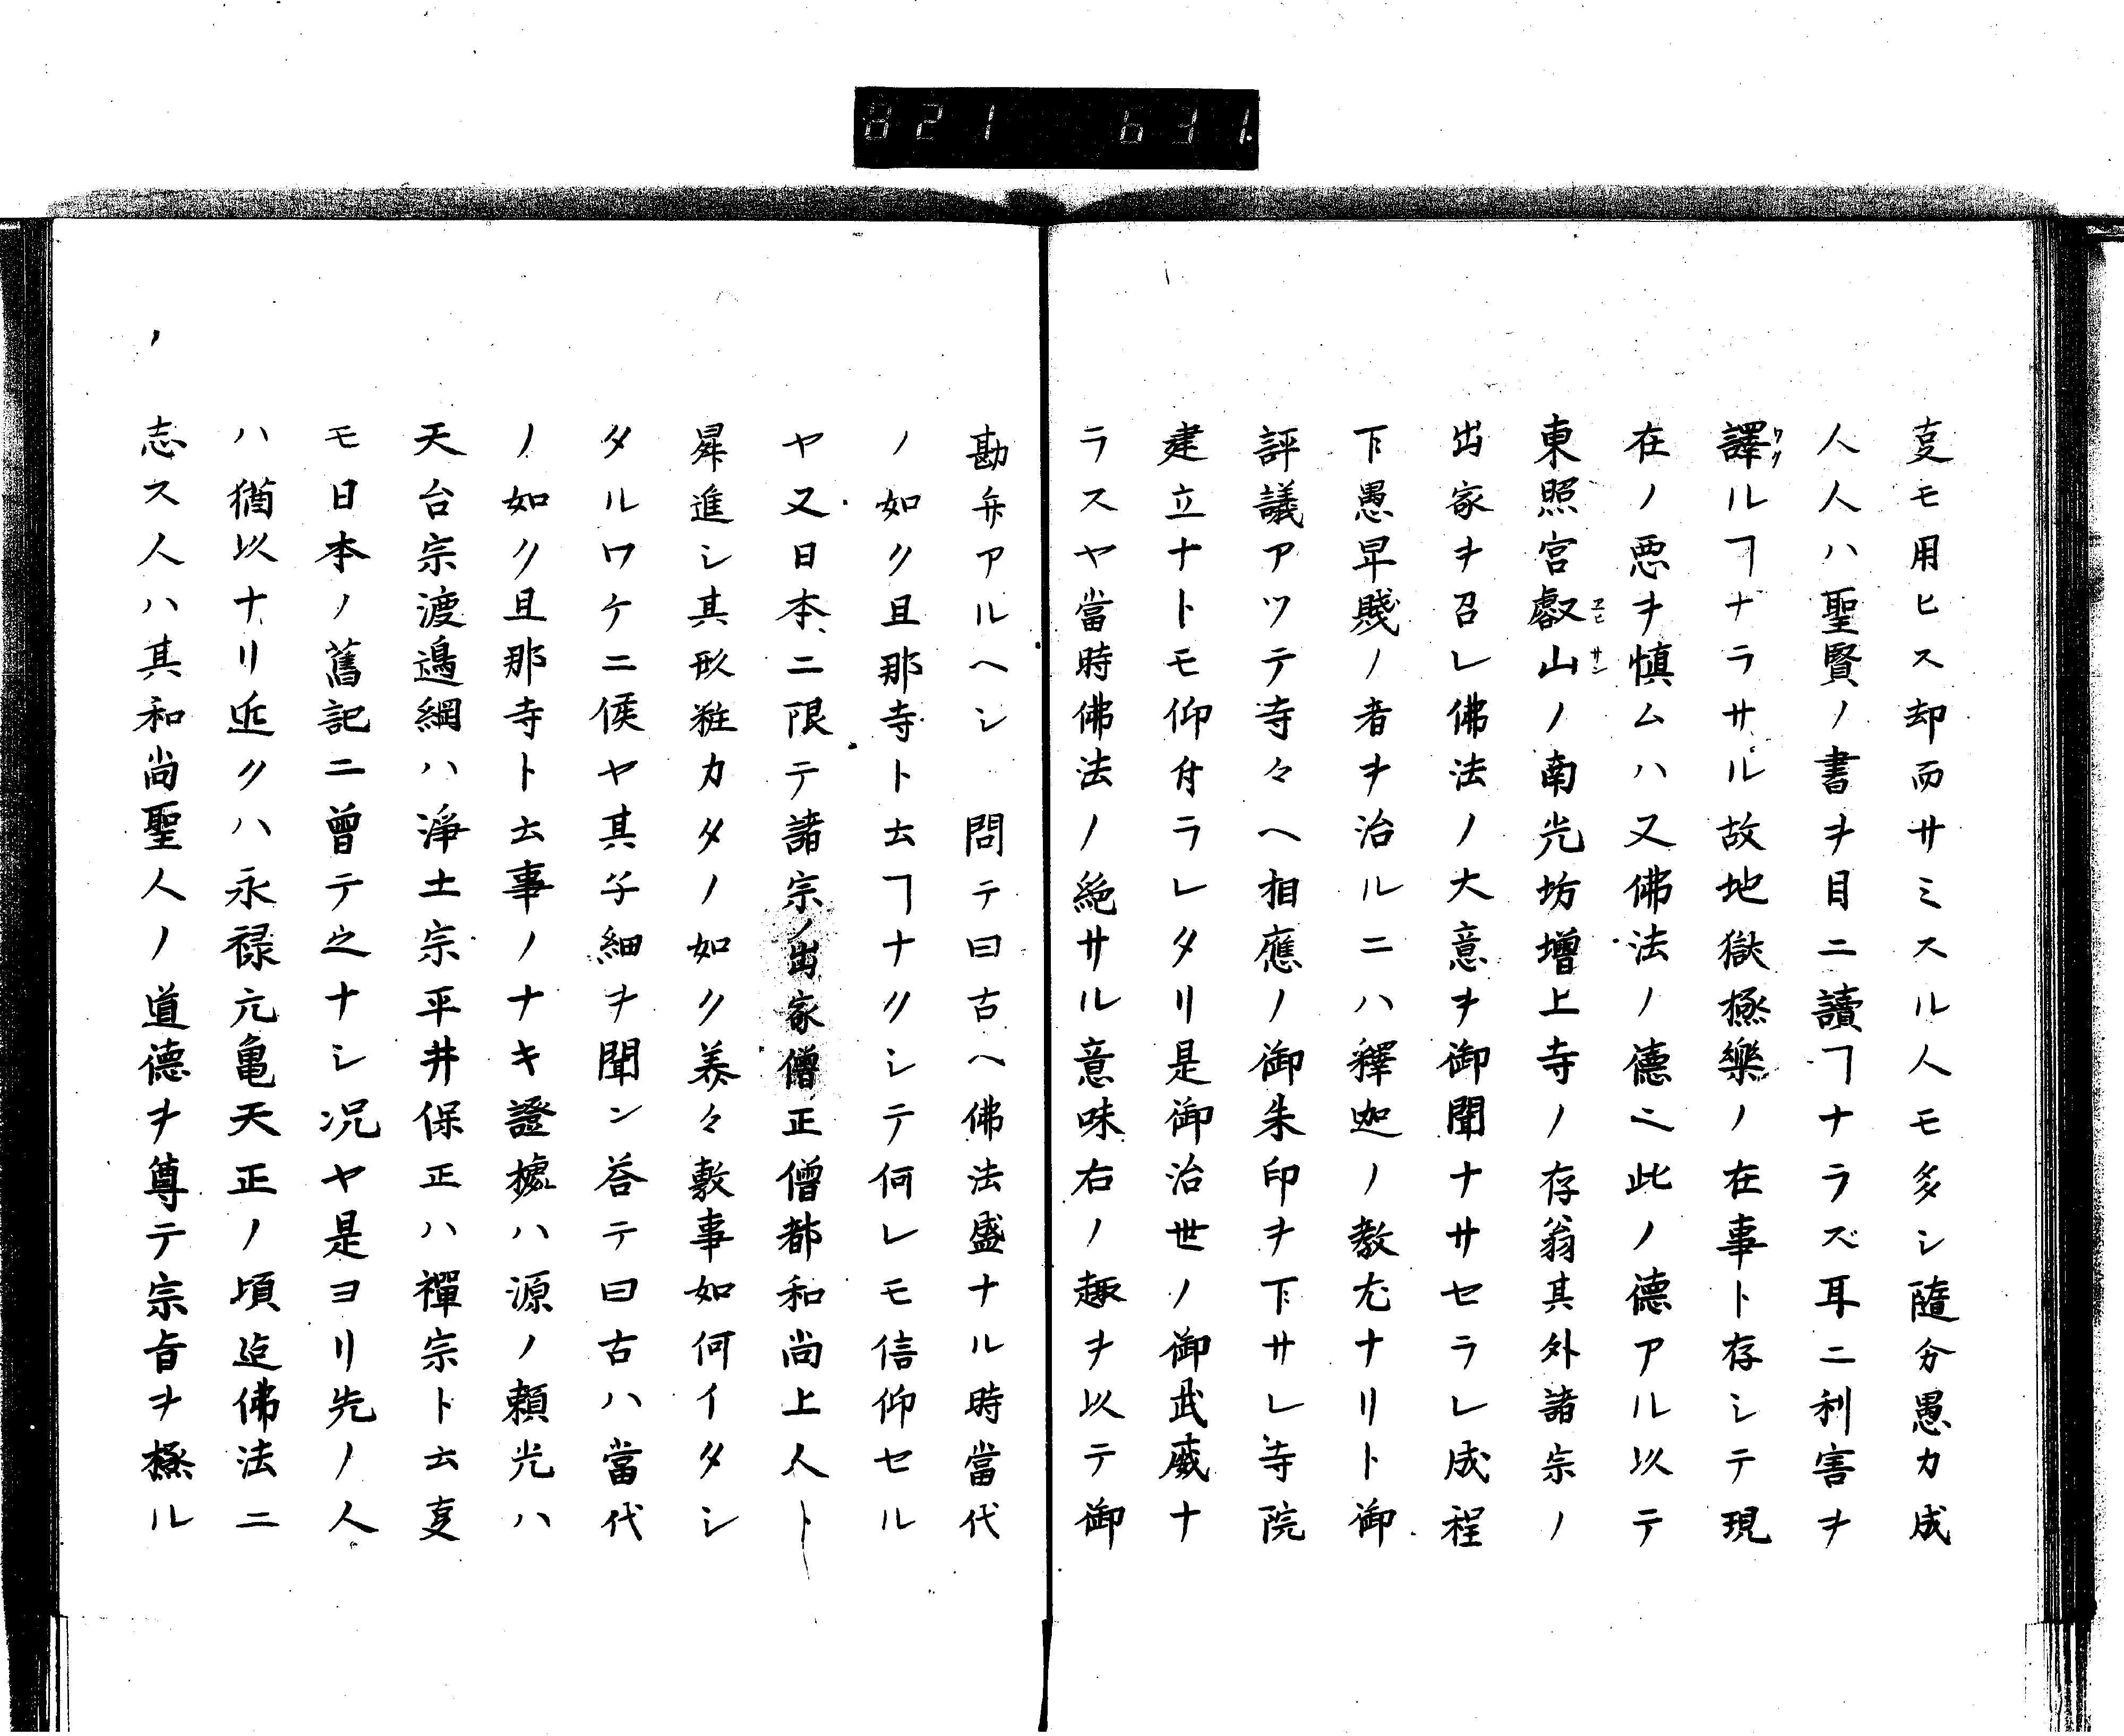 821 631.
㕝モ用ヒス却而サミスル人モ多シ隨分愚カ成
人人ハ聖賢ノ書ヲ目ニ讀ヿナラズ耳ニ利害ヲ
譯ルヿナラサル故地獄極樂ノ在事ト存シテ現
在ノ悪ヲ慎ムハ又佛法ノ德ニ此ノ德アル以テ
東照宮叡山ノ南光坊增上寺ノ存翁其外諸宗ノ
出家ヲ召レ佛法ノ大意ヲ御聞ナサセラレ成程
下愚早賤ノ者ヲ治ルニハ釋迦ノ教尤ナリト御
評議アツテ寺々ヘ相應ノ御朱印ヲ下サレ寺院
建立ナトモ仰付ラレタリ是御治世ノ御武威ナ
ラスヤ當時佛法ノ絶サル意味右ノ趣ヲ以テ御
勘弁アルヘシ 問テ曰古ヘ佛法盛ナル時當代
ノ如ク且那寺ト云ヿナクシテ何レモ信仰セル
ヤ又日本ニ限テ諸宗ノ出家僧正僧都和尚上人ト
昇進シ其形粧カタノ如ク美々敷事如何イタシ
タルワケニ候ヤ其子細ヲ聞ン答テ曰古ハ當代
ノ如ク且那寺ト云事ノナキ證據ハ源ノ頼光ハ
天台宗渡邉綱ハ淨土宗平井保正ハ禪宗ト云㕝
モ日本ノ舊記ニ曾テ之ナシ况ヤ是ヨリ先ノ人
ハ猶以ナリ近クハ永禄元亀天正ノ頃迠佛法ニ
志ス人ハ其和尚聖人ノ道德ヲ尊テ宗旨ヲ極ル